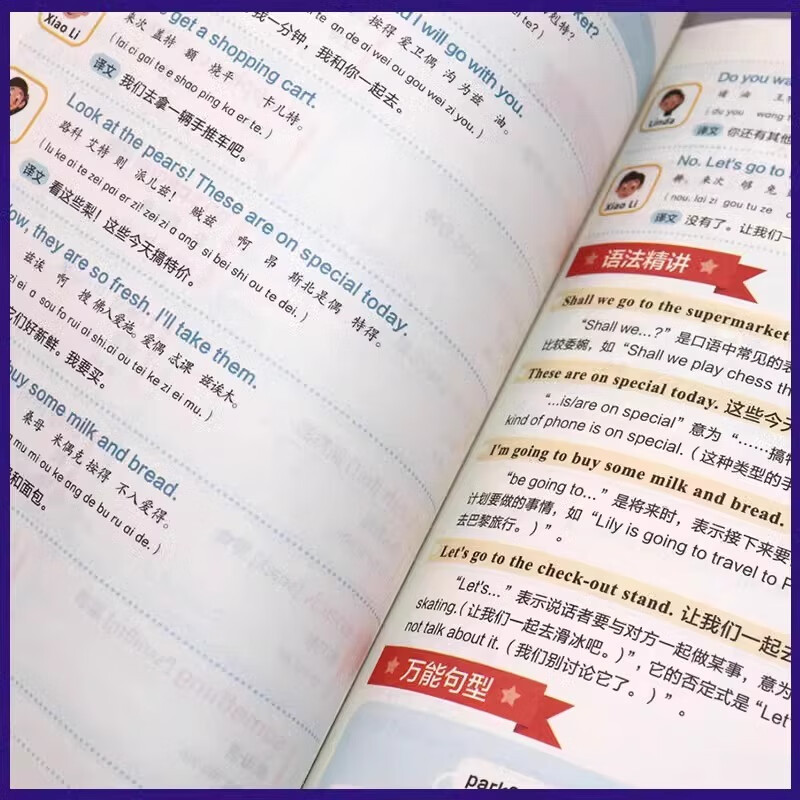 and I will go with you.
按得 爱卫偶 沟 为兹 油。
an de ai wei ou gou wei zi you.)
我一分钟，我和你一起去。
Xiao Li
get a shopping cart.
来次 盖特 额 烧平 卡儿特。
(lai ci gai te e shao ping ka er te.)
译文 我们去拿一辆手推车吧。
Look at the pears! These are on special today.
路科 艾特 则 派儿兹！ 贼兹 啊 昂 斯北是偶 特得。
(lu ke ai te zei pai er zi! zei zi a ang si bei shi ou te dei.)
译文 看这些梨！这些今天搞特价。
they are so fresh. I'll take them.
兹埃 啊 搜 佛入爱施。爱偶 忒课 兹埃木。
ei a sou fo rui ai shi.ai ou tei ke zi ei mu.)
们好新鲜。我要买。
buy some milk and bread.
桑母 米偶克 按得 不入爱得。
mu mi ou ke ang de bu ru ai de.)
和面包。
Linda
Do you wa
(du you wang
译文 你还有其他
Xiao Li
No. Let's go to
(nou. lai zi gou tu ze
译文 没有了。让我们一
语法精讲
Shall we go to the supermarket
“Shall we...?” 是口语中常见的表
比较委婉，如 “Shall we play chess th
These are on special today. 这些今天
“...is/are on special” 意为 “……搞特
kind of phone is on special. (这种类型的手
I'm going to buy some milk and bread.
“be going to...” 是将来时，表示接下来要
计划要做的事情，如 “Lily is going to travel to P
去巴黎旅行。)” 。
Let's go to the check-out stand. 让我们一起去
“Let's...” 表示说话者要与对方一起做某事，意为
skating.(让我们一起去滑冰吧。)”，它的否定式是 “Let'
not talk about it. (我们别讨论它了。)” 。
万能句型
park